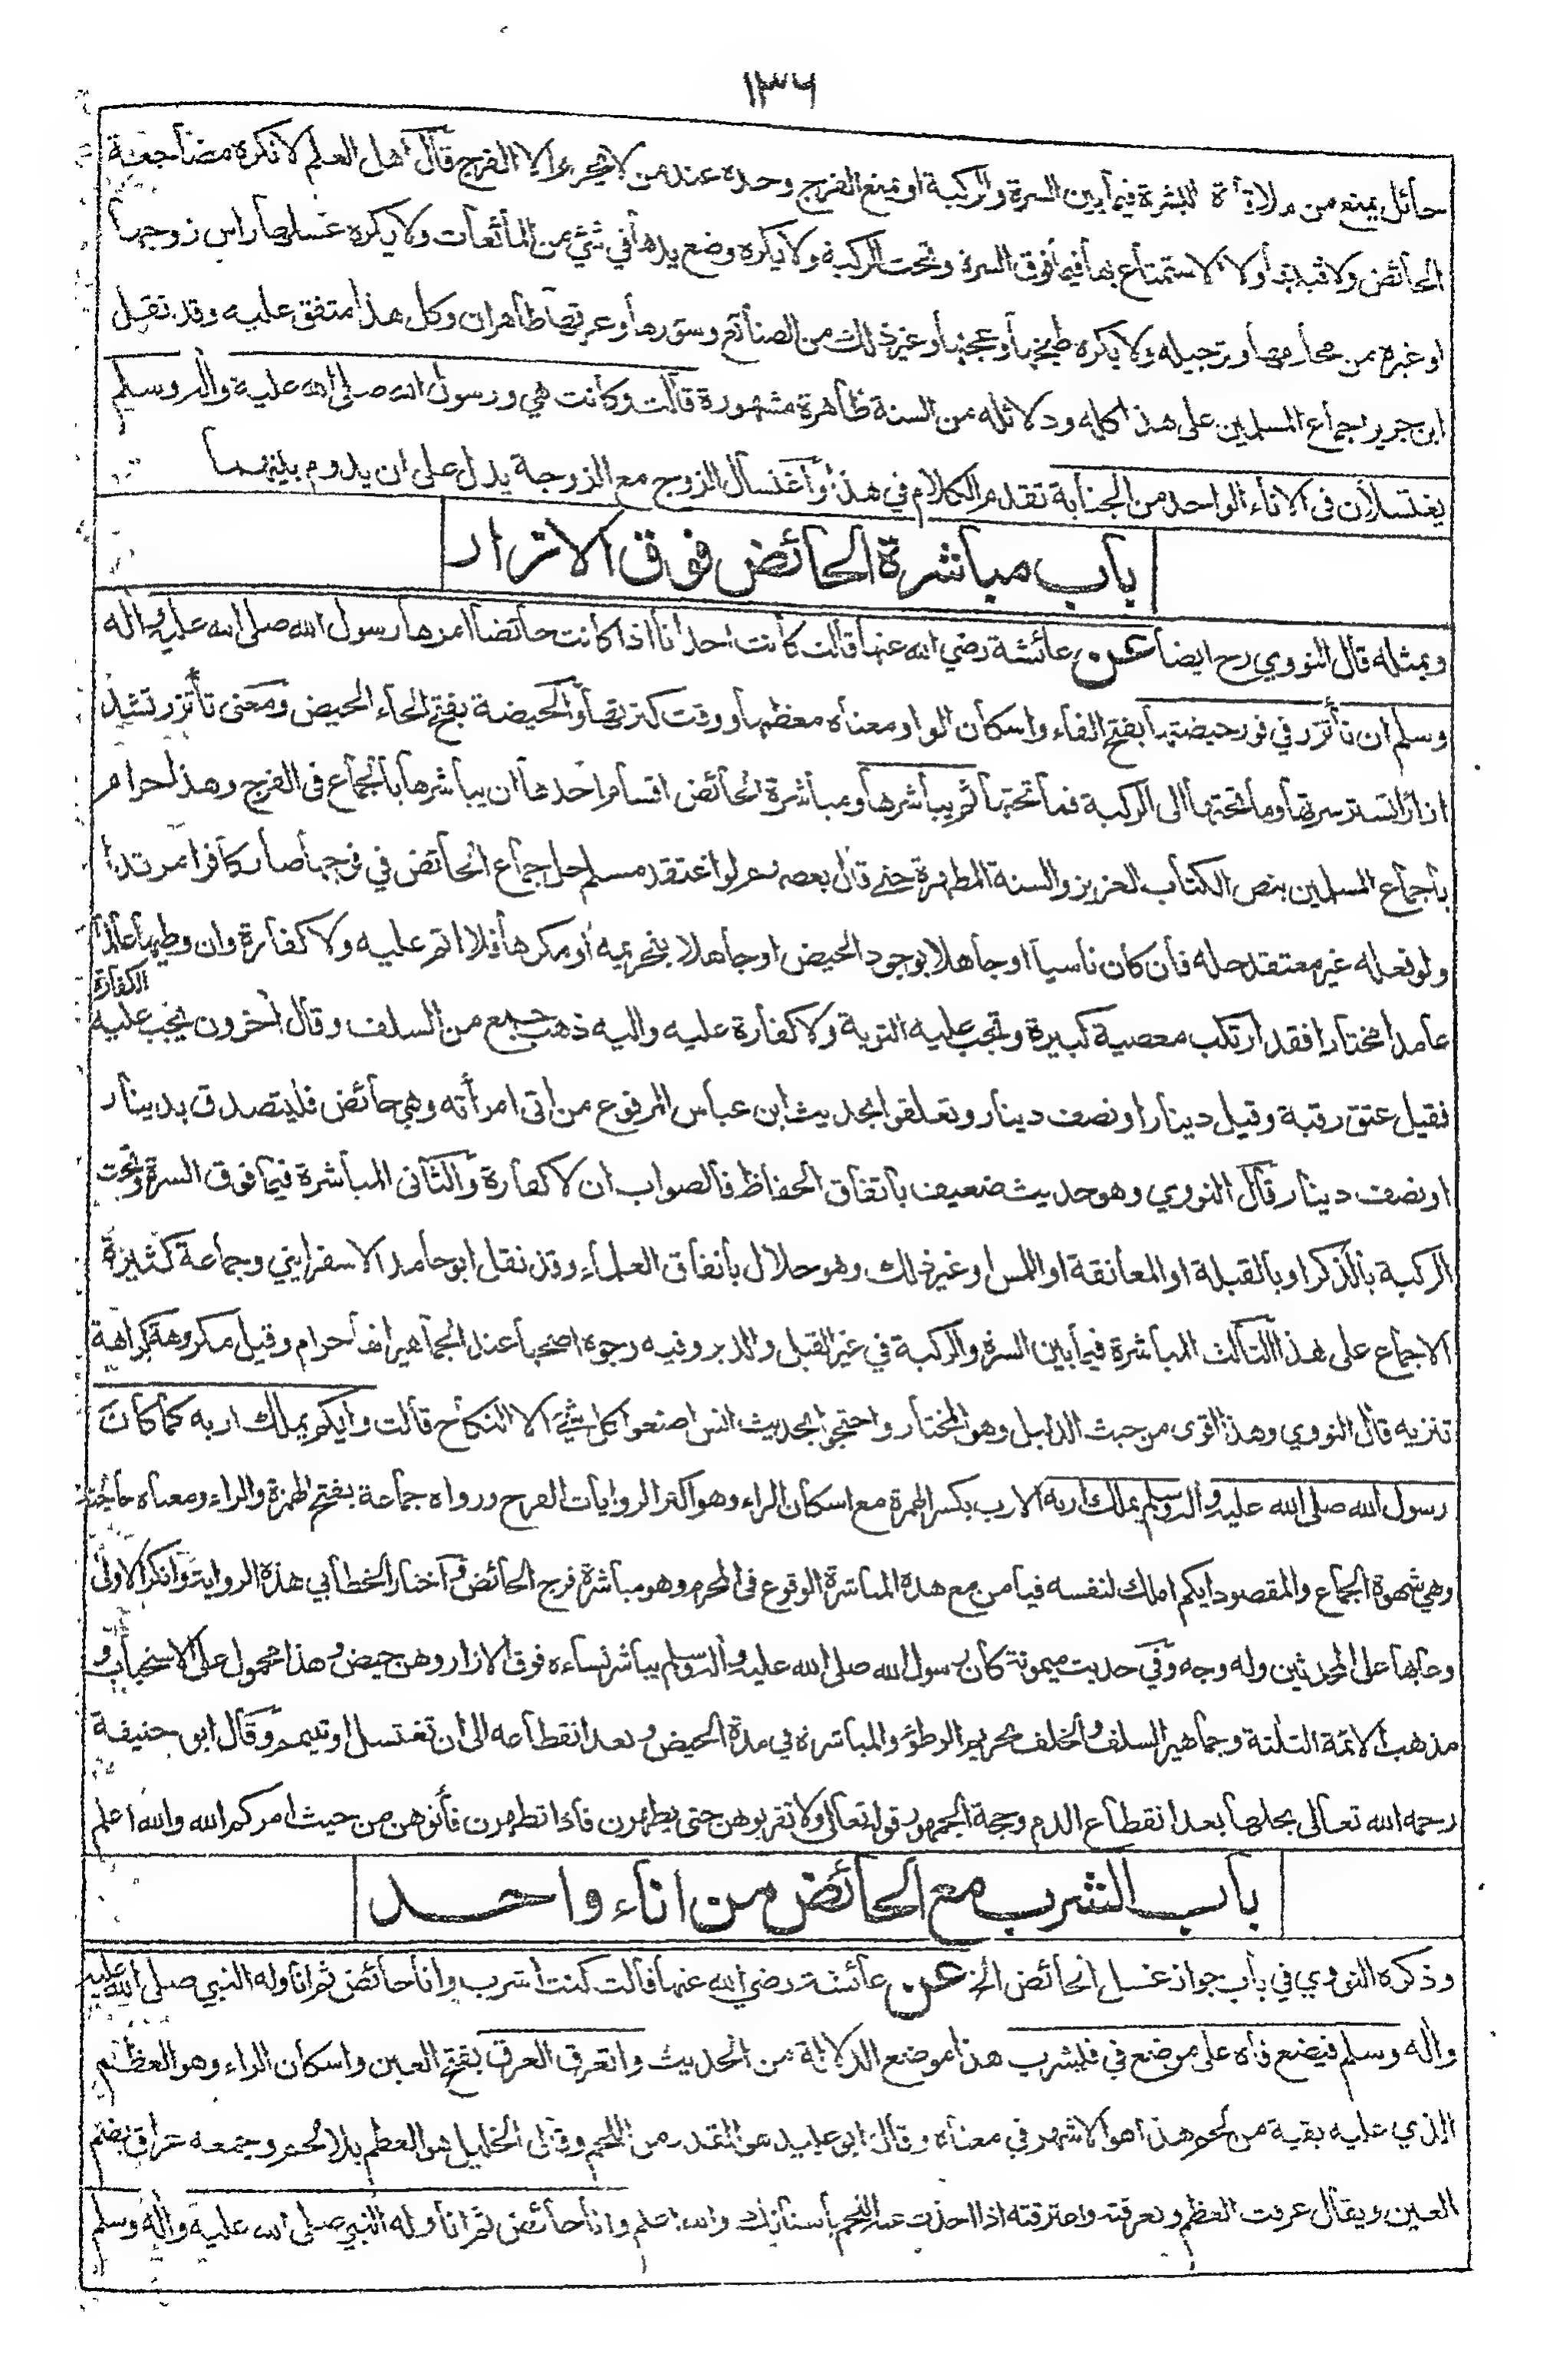 ١٣٦
حائل يمنع من ملاقاة البشرة فيما بين السرة والركبة او يمنع الفرج وحده عند من لا يحرم الا الفرج قال اهل العلم لا تكره مضاجعة
الحائض ولا قبلتها ولا الاستمتاع بها فيما فوق السرة وتحت الركبة ولا يكره وضع يدها في شئ من المائعات ولا يكره غسلها راس زوجها
او غيره من محارمها وترجيله ولا يكره طبخها وعجنها وغير ذلك من الصنائع وسؤرها وعرقها طاهران وكل هذا متفق عليه وقد نقل
ابن جرير اجماع المسلمين على هذا كله ودلائله من السنة ظاهرة مشهورة قالت وكانت هي ورسول الله صلى الله عليه واله وسلم
يغتسلان فى الاناء الواحد من الجنابة تقدم الكلام في هذا واغتسال الزوج مع الزوجة يدل على ان يدوم بينهما
باب مباشرة الحائض فوق الازار
وبمثله قال النووي رح ايضا عن عائشة رضي الله عنها قالت كانت احدانا اذا كانت حائضا امرها رسول الله صلى الله عليه واله
وسلم ان تأتزر في فور حيضتها بفتح الفاء واسكان الواو معناه معظمها ووقت كثرتها والحيضة بفتح الحاء الحيض ومعنى تأتزر تشد
ازارا تستر سرتها وما تحتها الى الركبة فما تحتها ثم يباشرها ومباشرة الحائض اقسام احدها ان يباشرها بالجماع فى الفرج وهذا حرام
باجماع المسلمين بنص الكتاب العزيز والسنة المطهرة حتى قال بعضهم لو اعتقد مسلم حل جماع الحائض في فرجها صار كافرا مرتدا
ولو فعله غير معتقد حله فان كان ناسيا او جاهلا بوجود الحيض او جاهلا بتحريمه او مكرها فلا اثم عليه ولا كفارة وان وطيها عالما
عامدا مختارا فقد ارتكب معصية كبيرة وتجب عليه التوبة ولا كفارة عليه واليه ذهب جمع من السلف وقال اخرون يجب عليه الكفارة
فقيل عتق رقبة وقيل دينار او نصف دينار وتعلقوا بحديث ابن عباس المرفوع من اتى امرأته وهي حائض فليتصدق بدينار
او نصف دينار قال النووي وهو حديث ضعيف باتفاق الحفاظ فالصواب ان لا كفارة والثانى المباشرة فيما فوق السرة وتحت
الركبة بالذكر او بالقبلة او المعانقة او اللمس او غير ذلك وهو حلال باتفاق العلماء وقد نقل ابو حامد الاسفرايني وجماعة كثيرة
الاجماع على هذا الثالث المباشرة فيما بين السرة والركبة في غير القبل والدبر وفيه وجوه اصحها عند الجماهير انها حرام وقيل مكروهة كراهة
تنزيه قال النووي وهذا اقوى من حيث الدليل وهو المختار واحتجوا بحديث انس اصنعوا كل شئ الا النكاح قالت وايكم يملك اربه كما كان
رسول الله صلى الله عليه واله وسلم يملك اربه الارب بكسر الهمزة مع اسكان الراء وهو اكثر الروايات الفرج ورواه جماعة بفتح الهمزة والراء ومعناه حاجته
وهي شهوة الجماع والمقصود ايكم املك لنفسه فيامن مع هذه المباشرة الوقوع فى المحرم وهو مباشرة فرج الحائض واختار الخطابي هذه الرواية وانكر الاولى
وعابها على المحدثين وله وجه وفي حديث ميمونة كان رسول الله صلى الله عليه واله وسلم يباشر نساءه فوق الازار وهن حيض وهذا محمول على الاستحباب و
مذهب الائمة الثلثة وجماهير السلف والخلف تحريم الوطؤ والمباشرة في مدة الحيض وبعد انقطاعه الى ان تغتسل او تتيمم وقال ابو حنيفة
رحمه الله تعالى بحلها بعد انقطاع الدم وحجة الجمهور قوله تعالى ولا تقربوهن حتى يطهرن فاذا تطهرن فأتوهن من حيث امركم الله والله اعلم
باب الشرب مع الحائض من اناء واحد
وذكره النووي في باب جواز غسل الحائض الخ عن عائشة رضي الله عنها قالت كنت اشرب وانا حائض ثم اناوله النبي صلى الله عليه
واله وسلم فيضع فاه على موضع في فيشرب هذا موضع الدلالة من الحديث واتعرق العرق بفتح العين واسكان الراء وهو العظم
الذي عليه بقية من لحم هذا هو الاشهر في معناه وقال ابو عبيد هو القدر من اللحم وقال الخليل هو العظم بلا لحم وجمعه عراق بضم
العين ويقال عرقت العظم وتعرقته واعترقته اذا اخذت عنه اللحم بأسنانك والله اعلم وانا حائض ثم اناوله النبي صلى الله عليه واله وسلم